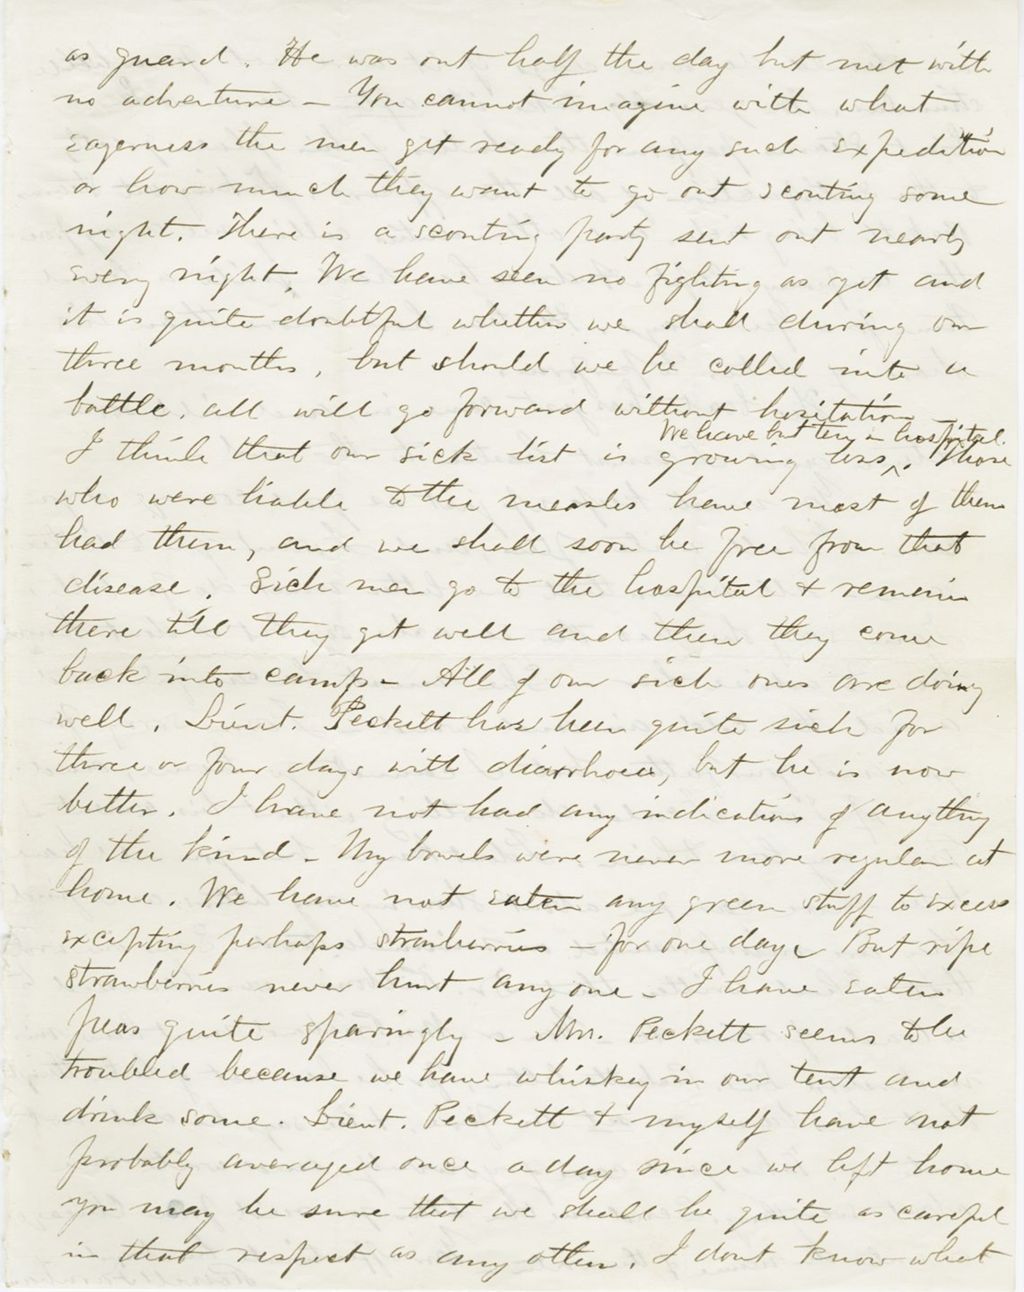 as guard. He was out half the day but met with
no adventure – You cannot imagine with what
eagerness the men get ready for any such expedition
or how much they want to go out scouting some
night. There is a scouting party sent out nearly
every night. We have seen no fighting as yet and
it is quite doubtful whether we shall during our
three months, but should we be called into a
battle, all will go forward without hezitation –
We have but ten in hospital.
I think that our sick list is growing less^. Those
who were liable to the measles have most of them
had them, and we shall soon be free from that
disease. Sick men go to the hospital & remain
there till they get well and then they come
back into camp – All of our sick ones are doing
well. Lieut. Peckett has been quite sick for
three or four days with diarrhoea, but he is now
better. I have not had any indications of anything
of the kind – My bowels were never more regular at
home. We have not eaten any green stuff to excess
excepting perhaps strawberries – for one day. But ripe
strawberries never hurt any one – I have eaten
peas quite sparingly – Mrs. Peckett seems to be
troubled because we have whiskey in our tent and
drink some. Lieut. Peckett & myself have not
probably averaged once a day since we left home
you may be sure that we shall be quite as careful
in that respect as any other. I dont know what